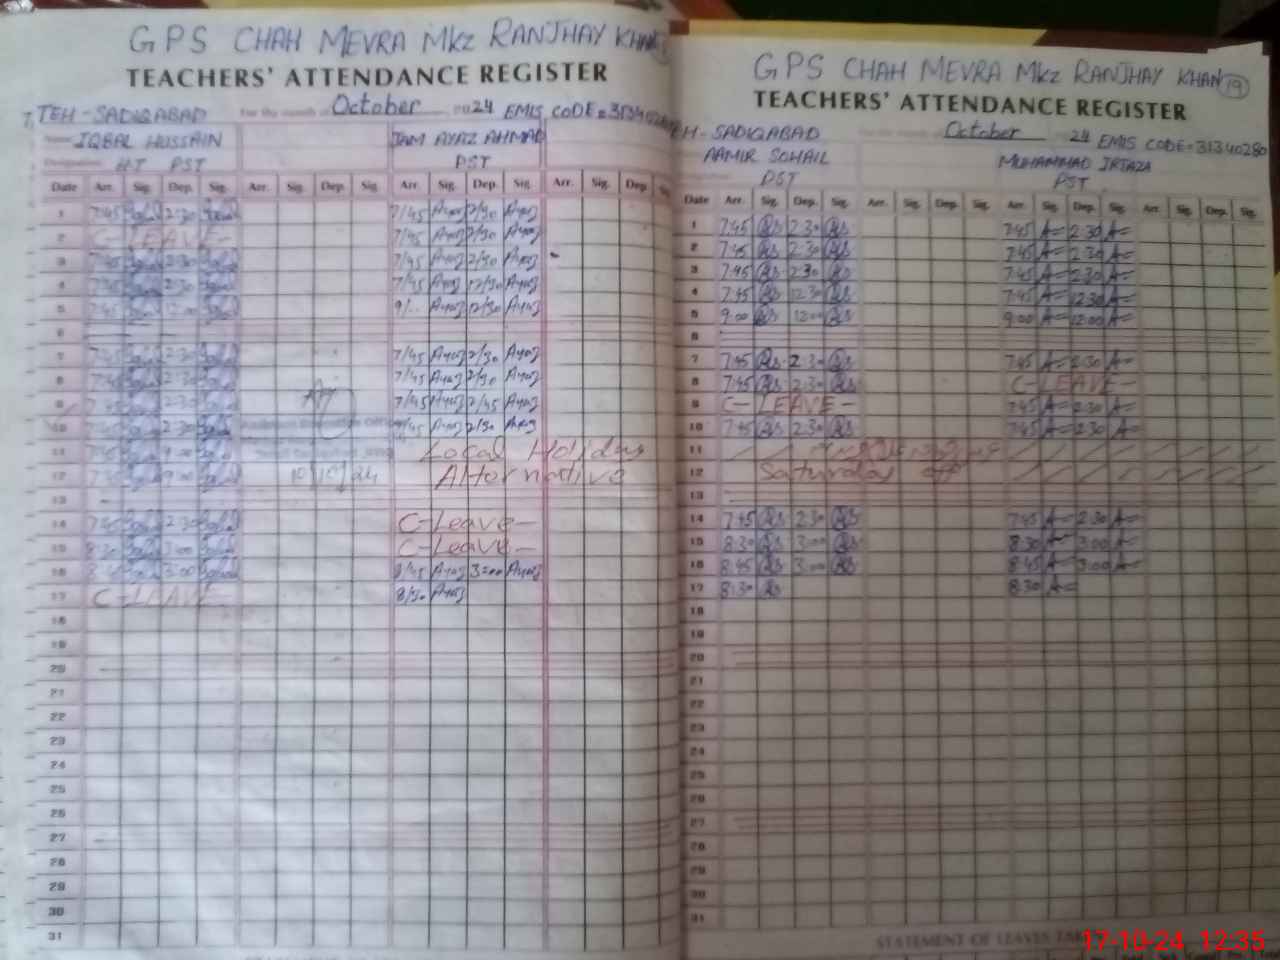 GPS CHAH MEVRA MKZ RANJHAY KHAN
TEACHERS' ATTENDANCE REGISTER
TEH-SADIQABAD For the month of October 2024 EMIS CODE=
IQBAL HUSSAIN JAM AYAZ AHMAD
HT PST PST
Date Arr. Sig. Dep. Sig. Arr. Sig. Dep. Sig. Arr. Sig. Dep. Sig. Arr. Sig. Dep
1 7:45 2:30 7/45 Ayaz 2/30 Ayaz
2 C-LEAVE- 7/45 Ayaz 2/30 Ayaz
3 7:45 2:30 7/45 Ayaz 2/30 Ayaz
4 7:45 12:30 7/45 Ayaz 12/30 Ayaz
5 7:45 12:00 9/.. Ayaz 12/30 Ayaz
6
7 7:45 2:30 7/45 Ayaz 2/30 Ayaz
8 7:45 2:30 7/45 Ayaz 2/30 Ayaz
9 7:45 2:30 7/45 Ayaz 2/45 Ayaz
10 7:45 2:30 7/45 Ayaz 2/30 Ayaz
11 Local Holiday
12 10/10/24 Alternative
13
14 7:45 2:30 C-Leave-
15 8:30 3:00 C-Leave-
16 8:45 3:00 8/45 Ayaz 3:00 Ayaz
17 C-LEAVE- 8/30 Ayaz
18
19
20
21
22
23
24
25
26
27
28
29
30
31
GPS CHAH MEVRA MKZ RANJHAY KHAN 19
TEACHERS' ATTENDANCE REGISTER
TEH-SADIQABAD For the month of October 2024 EMIS CODE=31340280
AAMIR SOHAIL MUHAMMAD IRTAZA
PST PST
Date Arr. Sig. Dep. Sig. Arr. Sig. Dep. Sig. Arr. Sig. Dep. Sig. Arr. Sig. Dep. Sig.
1 7:45 2:30 7:45 2:30
2 7:45 2:30 7:45 2:30
3 7:45 2:30 7:45 2:30
4 7:45 12:30 7:45 12:30
5 9:00 12:00 9:00 12:00
6
7 7:45 2:30 7:45 2:30
8 7:45 2:30 C-LEAVE-
9 C-LEAVE- 7:45 2:30
10 7:45 2:30 7:45 2:30
11
12 Saturday off
13
14 7:45 2:30 7:45 2:30
15 8:30 3:00 8:30 3:00
16 8:45 3:00 8:45 3:00
17 8:30 8:30
18
19
20
21
22
23
24
25
26
27
28
29
30
31
STATEMENT OF LEAVES
17-10-24 12:35